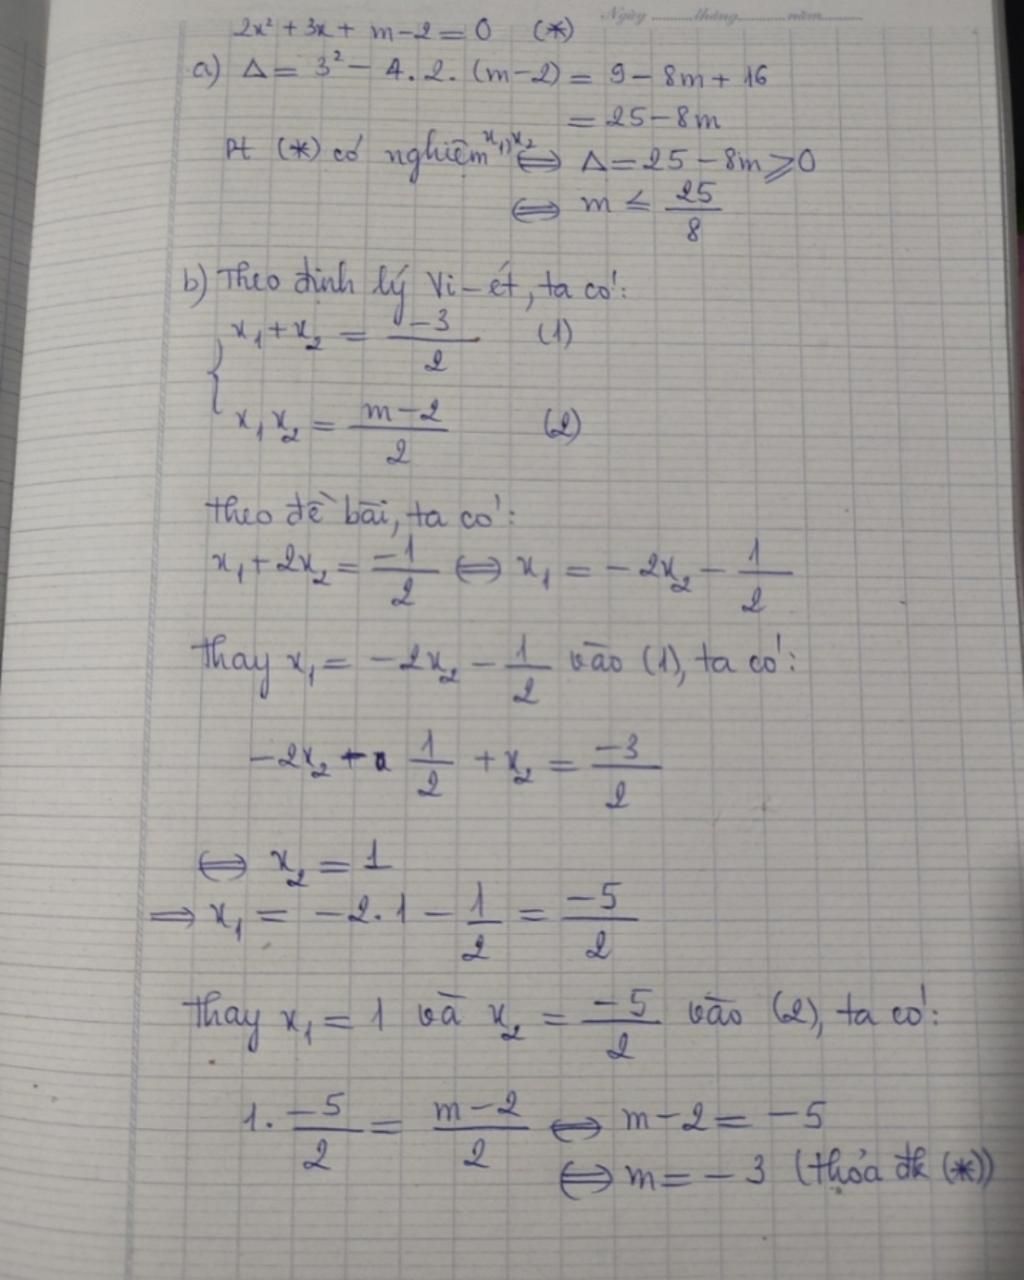 Ngày ............tháng............năm............
2x² + 3x + m-2 = 0 (*)
a) Δ = 3² - 4.2.(m-2) = 9 - 8m + 16
= 25-8m
Pt (*) có nghiệm x₁, x₂ ⟺ Δ = 25 - 8m ⩾ 0
⟺ m ≤ 25/8
b) Theo định lý Vi-ét, ta có:
{ x₁ + x₂ = -3/2 (1)
x₁x₂ = (m-2)/2 (2)
Theo đề bài, ta có:
x₁ + 2x₂ = -1/2 ⟺ x₁ = -2x₂ - 1/2
Thay x₁ = -2x₂ - 1/2 vào (1), ta có:
-2x₂ - 1/2 + x₂ = -3/2
⟺ x₂ = 1
⟹ x₁ = -2.1 - 1/2 = -5/2
Thay x₁ = 1 và x₂ = -5/2 vào (2), ta có:
1. -5/2 = (m-2)/2 ⟺ m-2 = -5
⟺ m = -3 (thỏa đk (*))